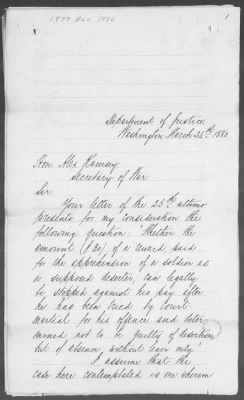 1
Department of Justice
Washington, March 26th, 1880
Hon. Alex Ramsey,
Secretary of War.
Sir:
Your letter of the 25th ultimo
presents for my consideration the
following question: "Whether the
amount ($30) of a award, paid
for the apprehension of a soldier as
a supposed deserter, can legally
be stopped against his pay after
he has been tried by Court-
martial for his offence and deter-
mined not to be guilty of desertion,
but of absence without leave only."
I assume that the
case here contemplated is one wherein